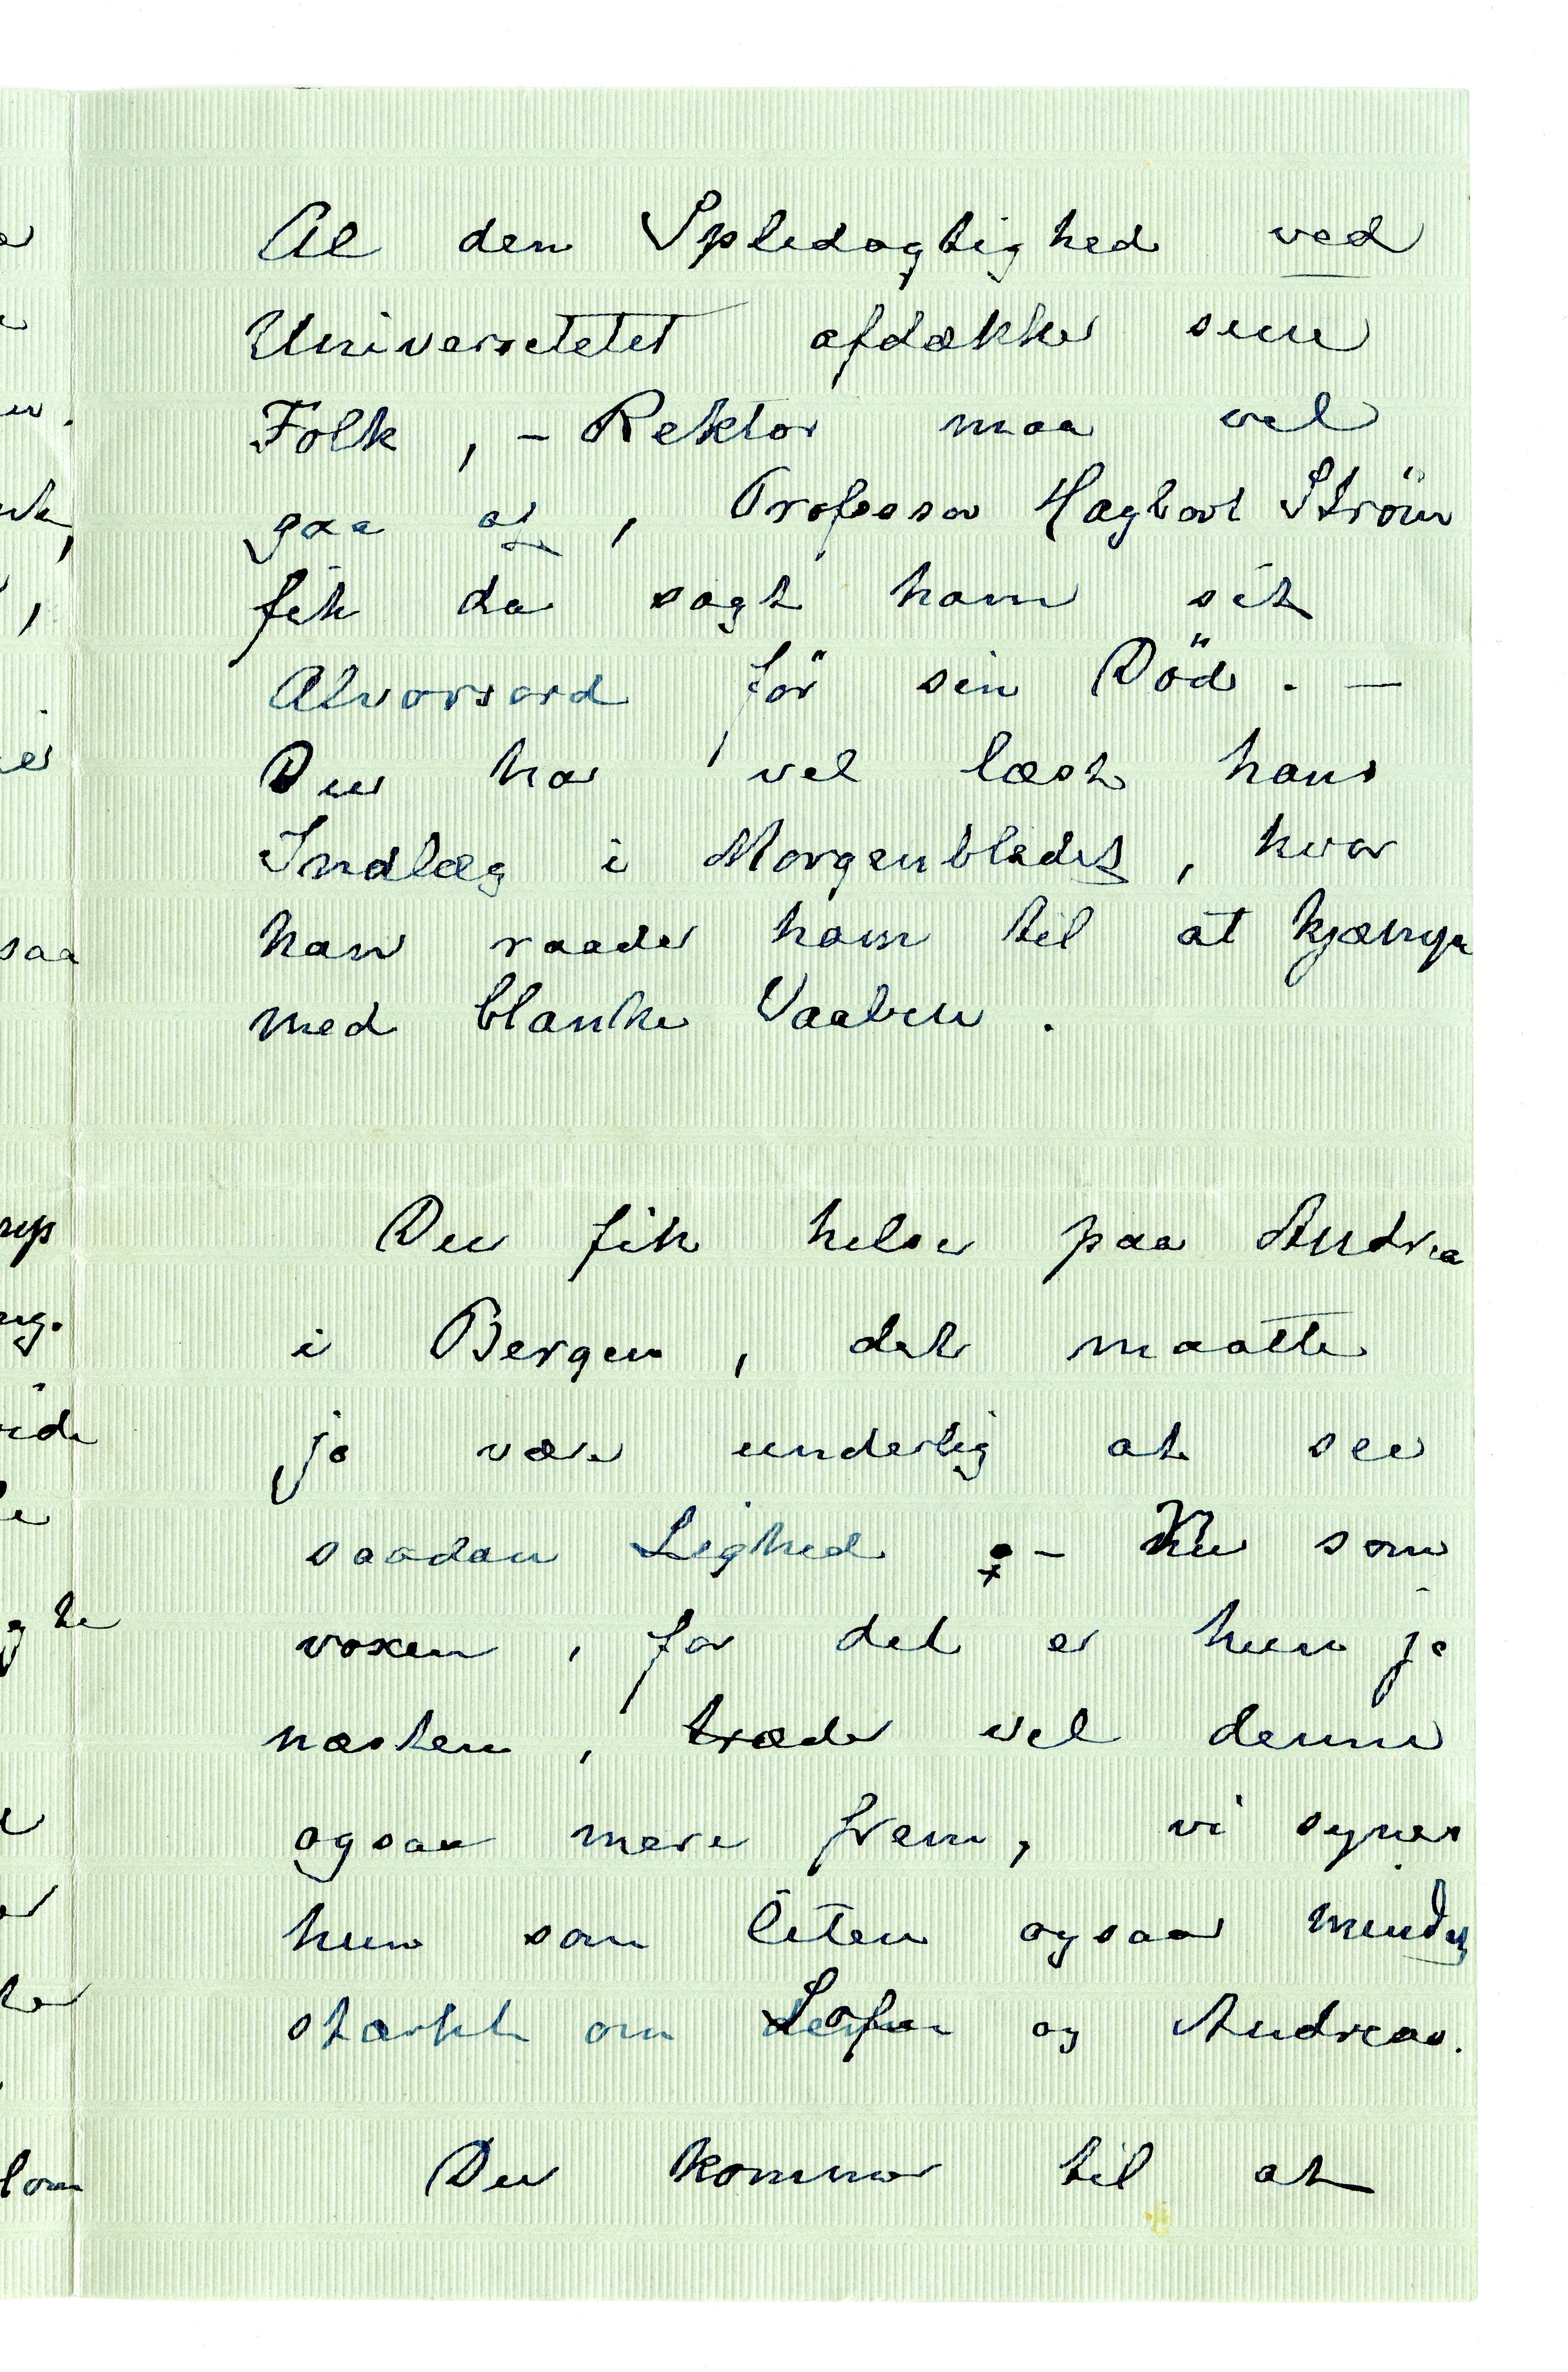 Al den Splidagtighed ved
Universetetet afdækker sine
Folk, - Rektor maa vel
gaa af, Professor Hagbart Ström
fik da sagt ham sit
Alvorsord för sin Död. —
Du har vel læst hans
Indlæg i Morgenbladet, hvor
han raader ham til at kjæmpe
med blanke Vaaben.
Du fik helse paa Andrea
i Bergen, det maatte
ja være underlig at see
saadan Lighed - Nu som
voxen, for det er hun ja
næsten, træder vel denne
ogsaa mere frem, vi synes
hun som liten ogsaa mindet
stærkt om og Andreas.
Du kommer til at